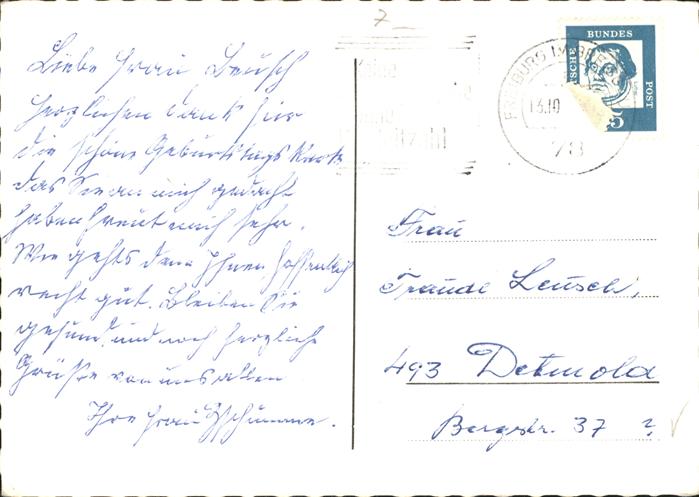 7
Liebe Frau Leusch
herzlichen Dank für
die schöne Geburtstags Karte
das Sie an mich gedacht
haben freut mich sehr.
Wie gehts denn Ihnen hoffentlich
recht gut. Bleiben Sie
gesund, und noch herzliche
Grüße von uns allen
Ihre Frau
DEUTSCHE BUNDESPOST
15
FREIBURG IM BREISGAU
13.10
78
Frau
Traude Leusch,
493 Detmold
Bergstr. 37 ?